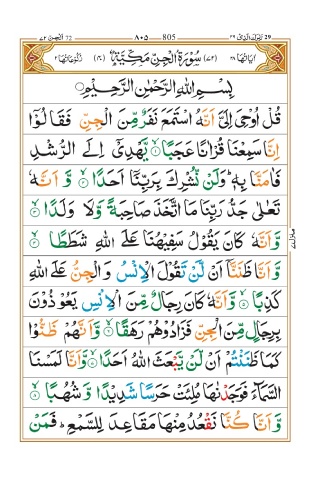 الجن ٧٢ 72 ٨٠٥ 805 تبرك الذي ٢٩ 29
اٰيَاتُهَا ٢٨ (٧٢) سُوْرَةُ الْجِنِّ مَكِّيَّةٌ (٤٠) رُكُوْعَاتُهَا ٢
بِسْمِ اللّٰهِ الرَّحْمٰنِ الرَّحِيْمِ
قُلْ اُوْحِيَ اِلَيَّ اَنَّهُ اسْتَمَعَ نَفَرٌ مِّنَ الْجِنِّ فَقَالُوْٓا
اِنَّا سَمِعْنَا قُرْاٰنًا عَجَبًا ۙ﴿۱﴾ يَّهْدِيْٓ اِلَى الرُّشْدِ
فَاٰمَنَّا بِهٖ ؕ وَلَنْ نُّشْرِكَ بِرَبِّنَآ اَحَدًا ۙ﴿۲﴾ وَّ اَنَّهٗ
تَعٰلٰى جَدُّ رَبِّنَا مَا اتَّخَذَ صَاحِبَةً وَّلَا وَلَدًا ۙ﴿۳﴾
وَّ اَنَّهٗ كَانَ يَقُوْلُ سَفِيْهُنَا عَلَى اللّٰهِ شَطَطًا ۙ﴿۴﴾
وَّ اَنَّا ظَنَنَّآ اَنْ لَّنْ تَقُوْلَ الْاِنْسُ وَ الْجِنُّ عَلَى اللّٰهِ
كَذِبًا ۙ﴿۵﴾ وَّ اَنَّهٗ كَانَ رِجَالٌ مِّنَ الْاِنْسِ يَعُوْذُوْنَ
بِرِجَالٍ مِّنَ الْجِنِّ فَزَادُوْهُمْ رَهَقًا ۙ﴿۶﴾ وَّاَنَّهُمْ ظَنُّوْا
كَمَا ظَنَنْتُمْ اَنْ لَّنْ يَّبْعَثَ اللّٰهُ اَحَدًا ۙ﴿۷﴾ وَّاَنَّا لَمَسْنَا
السَّمَآءَ فَوَجَدْنٰهَا مُلِئَتْ حَرَسًا شَدِيْدًا وَّ شُهُبًا ۙ﴿۸﴾
وَّ اَنَّا كُنَّا نَقْعُدُ مِنْهَا مَقَاعِدَ لِلسَّمْعِ ؕ فَمَنْ